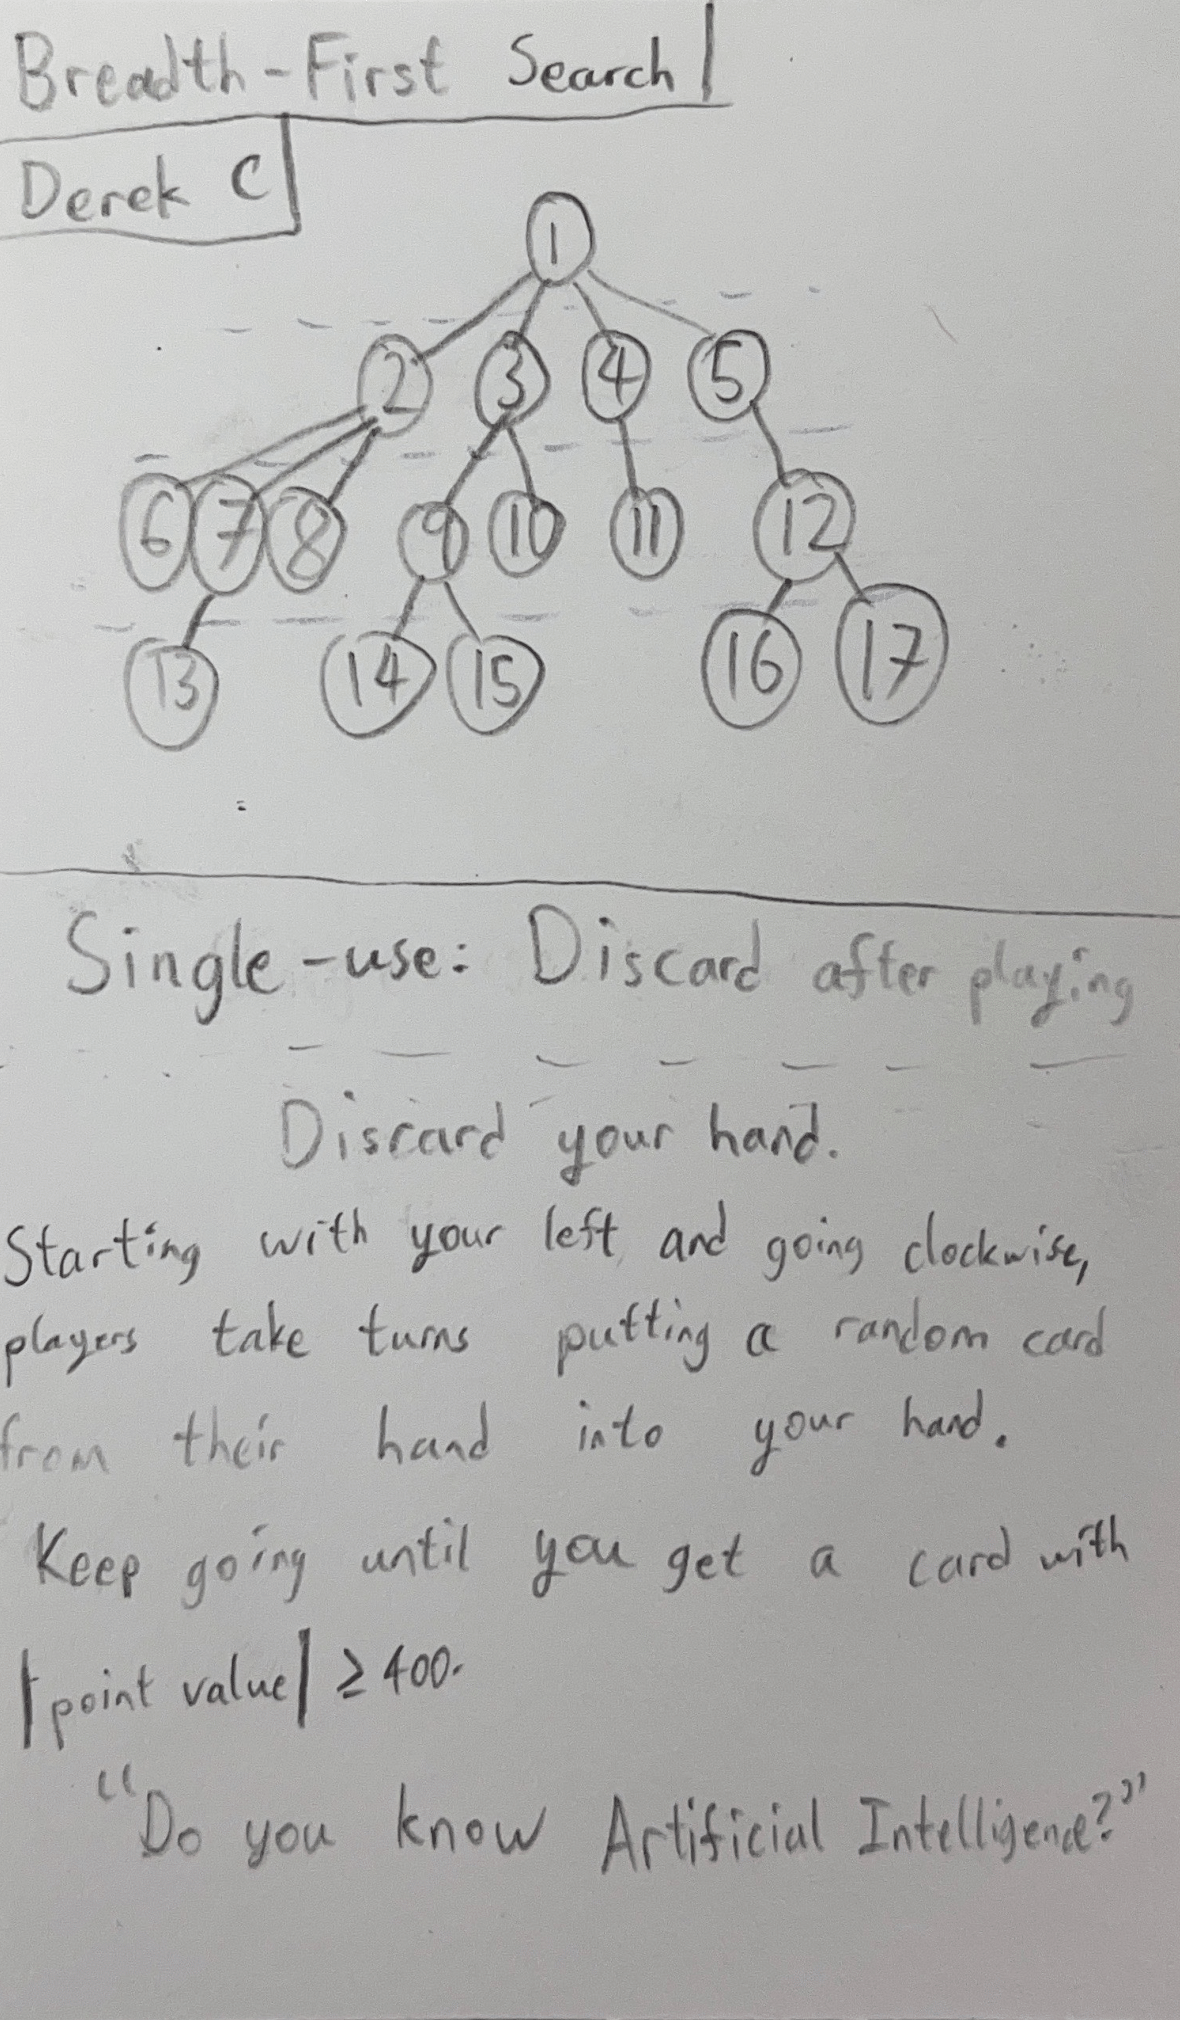 Breadth-First Search
Derek C
1
2 3 4 5
6 7 8 9 10 11 12
13 14 15 16 17
Single-use: Discard after playing
Discard your hand.
Starting with your left and going clockwise,
players take turns putting a random card
from their hand into your hand.
Keep going until you get a card with
|point value| ≥ 400.
"Do you know Artificial Intelligence?"